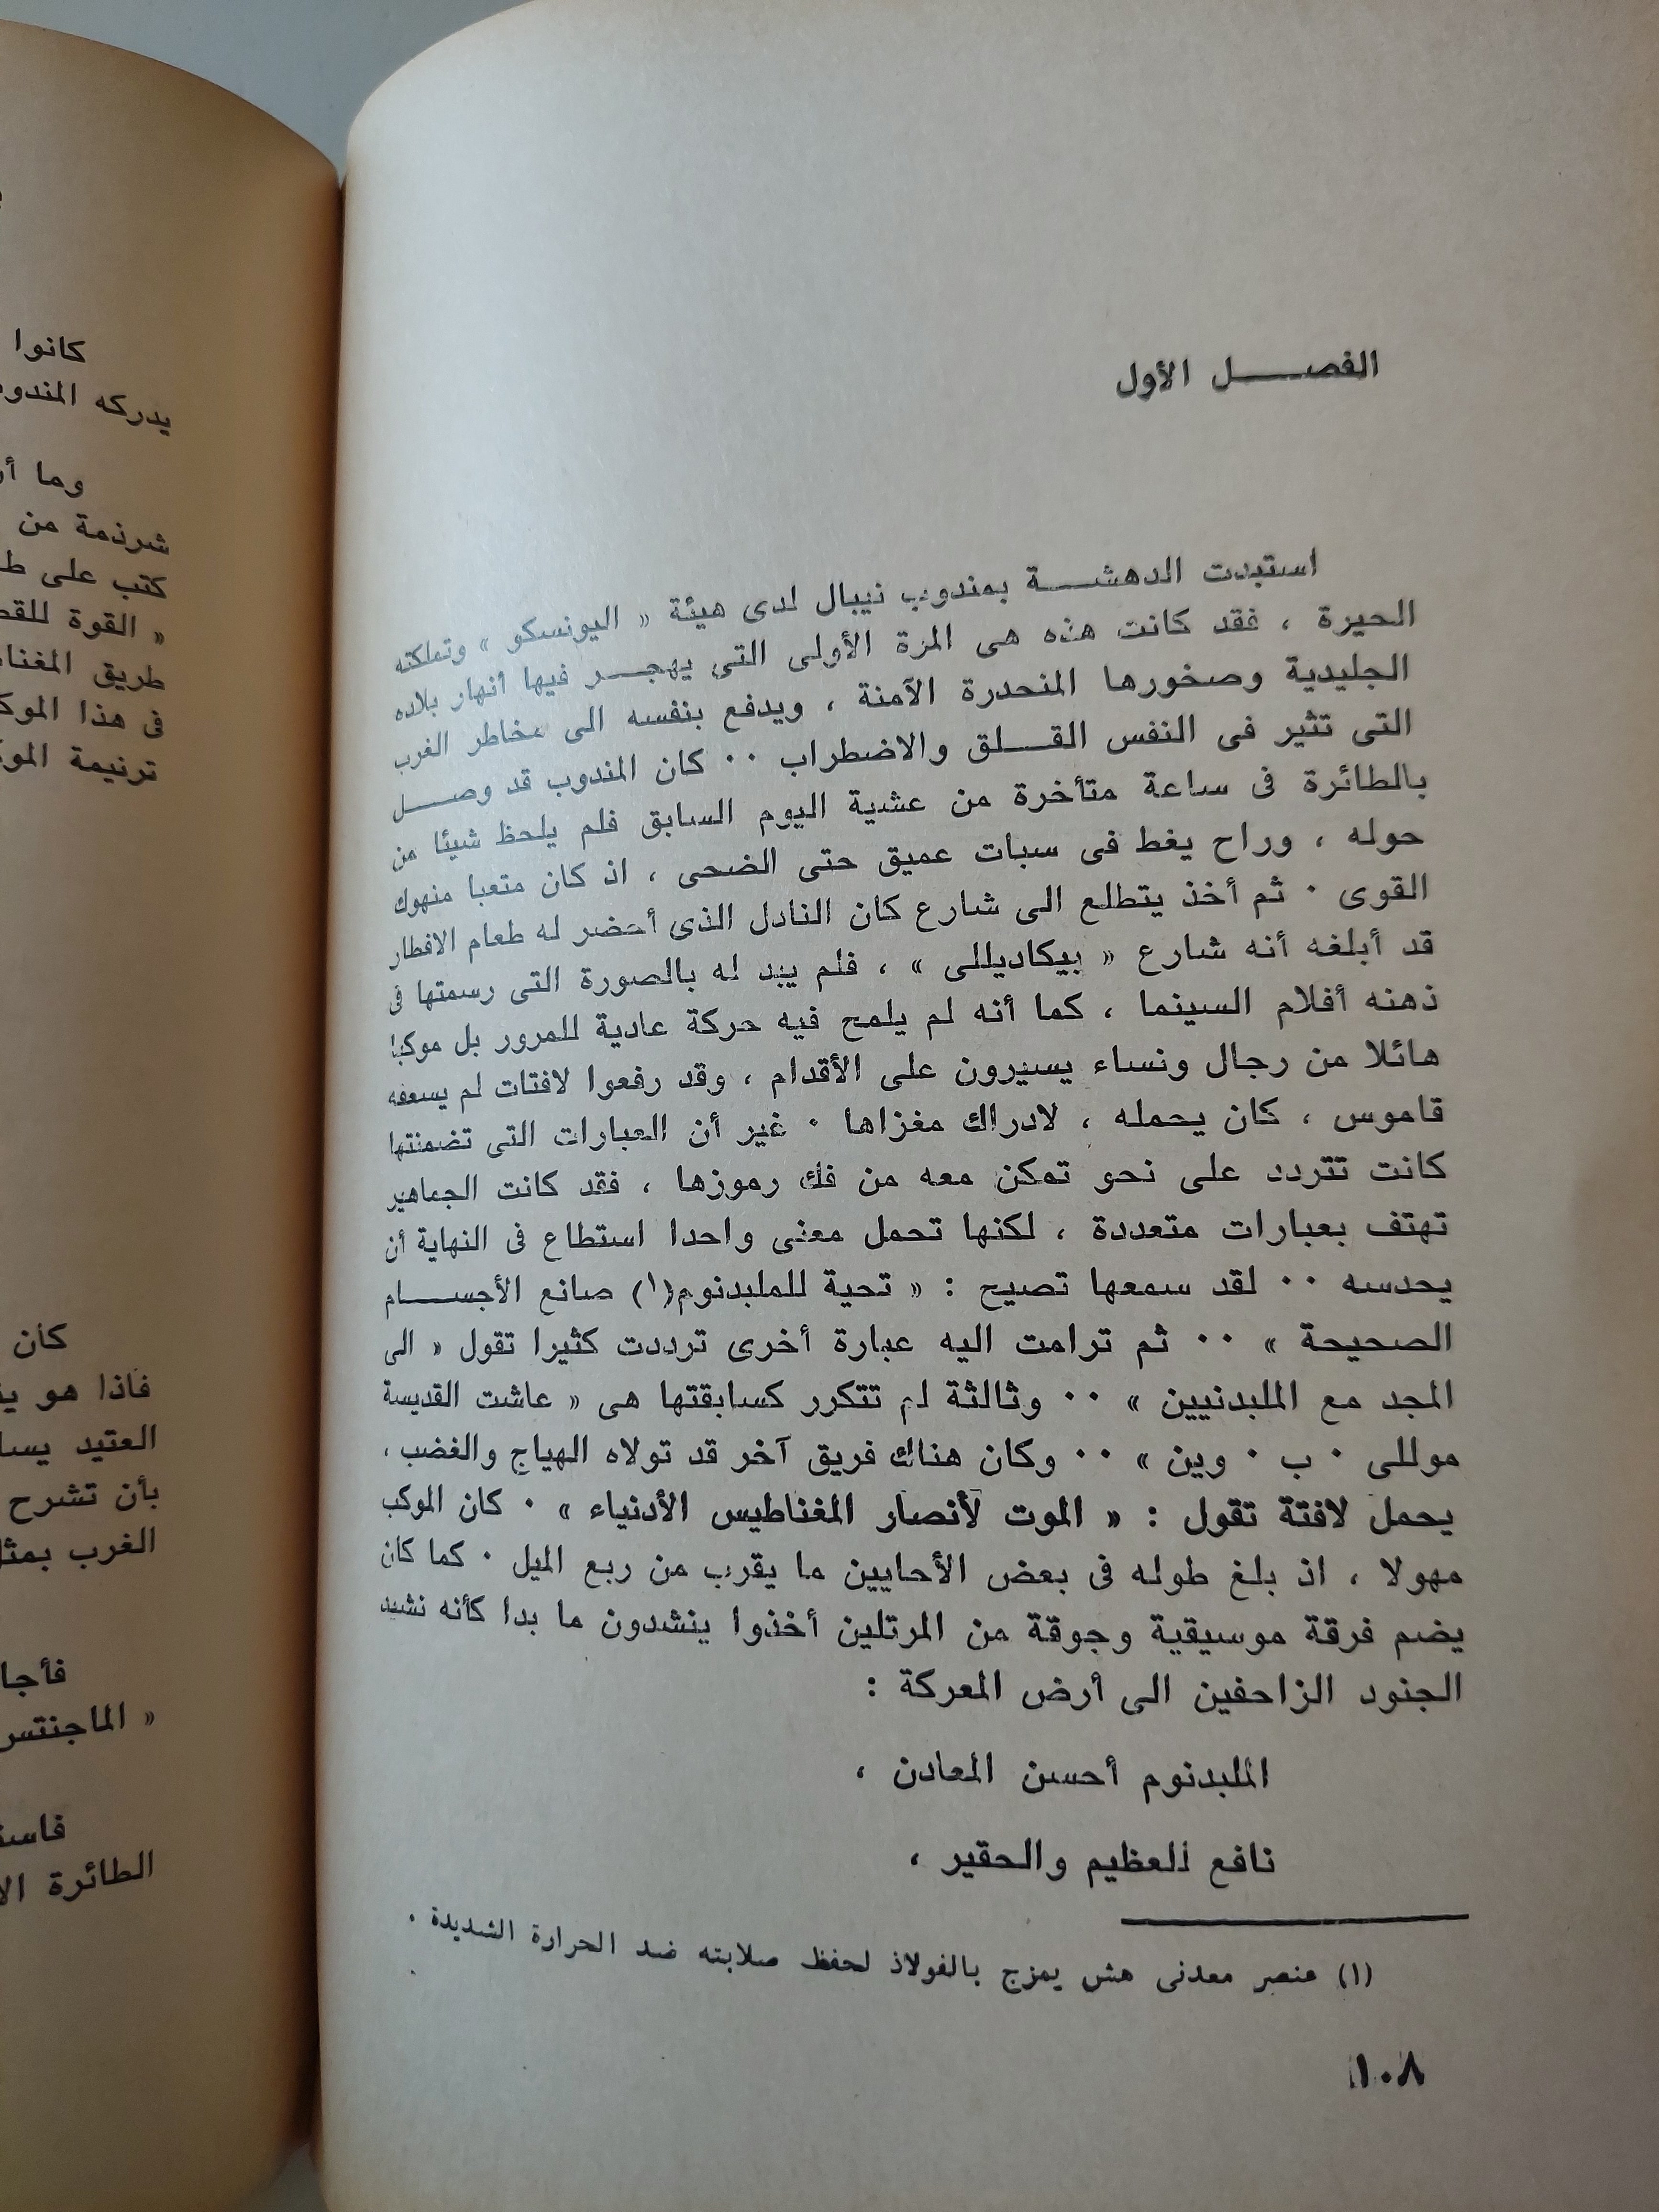 الفصل الأول
استبدت الدهشة بمندوب نيبال لدى هيئة « اليونسكو » وتملكته
الحيرة ، فقد كانت هذه هى المرة الأولى التى يهجر فيها أنهار بلاده
الجليدية وصخورها المنحدرة الآمنة ، ويدفع بنفسه الى مخاطر الغرب
التى تثير فى النفس القلق والاضطراب ٠٠ كان المندوب قد وصل
بالطائرة فى ساعة متأخرة من عشية اليوم السابق فلم يلحظ شيئا من
حوله ، وراح يغط فى سبات عميق حتى الضحى ، اذ كان متعبا منهوك
القوى ٠ ثم أخذ يتطلع الى شارع كان النادل الذى أحضر له طعام الافطار
قد أبلغه أنه شارع « بيكاديللى » ، فلم يبد له بالصورة التى رسمتها فى
ذهنه أفلام السينما ، كما أنه لم يلمح فيه حركة عادية للمرور بل موكبا
هائلا من رجال ونساء يسيرون على الأقدام ، وقد رفعوا لافتات لم يسعفه
قاموس ، كان يحمله ، لادراك مغزاها ٠ غير أن العبارات التى تضمنتها
كانت تتردد على نحو تمكن معه من فك رموزها ، فقد كانت الجماهير
تهتف بعبارات متعددة ، لكنها تحمل معنى واحدا استطاع فى النهاية أن
يحدسه ٠٠ لقد سمعها تصيح : « تحية للملبدنوم(١) صانع الأجسام
الصحيحة » ٠٠ ثم ترامت اليه عبارة أخرى ترددت كثيرا تقول « الى
المجد مع الملبدنيين » ٠٠ وثالثة لم تتكرر كسابقتها هى « عاشت القديسة
موللى ٠ ب ٠ وين » ٠٠ وكان هناك فريق آخر قد تولاه الهياج والغضب ،
يحمل لافتة تقول : « الموت لأنصار المغناطيس الأدنياء » ٠ كان الموكب
مهولا ، اذ بلغ طوله فى بعض الأحايين ما يقرب من ربع الميل ٠ كما كان
يضم فرقة موسيقية وجوقة من المرتلين أخذوا ينشدون ما بدا كأنه نشيد
الجنود الزاحفين الى أرض المعركة :
الملبدنوم أحسن المعادن ،
نافع للعظيم والحقير ،
(١) عنصر معدنى هش يمزج بالفولاذ لحفظ صلابته ضد الحرارة الشديدة ٠
١٠٨
كانوا
يدركه
وما
شرذمة من
كتب على
« القوة
طريق
فى هذا
ترنيمة
كان
فاذا هو
العتيد
بأن تشرح
الغرب
الطائرة